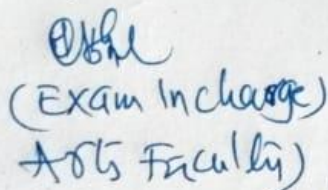 (Exam Incharge)
Arts Faculty)